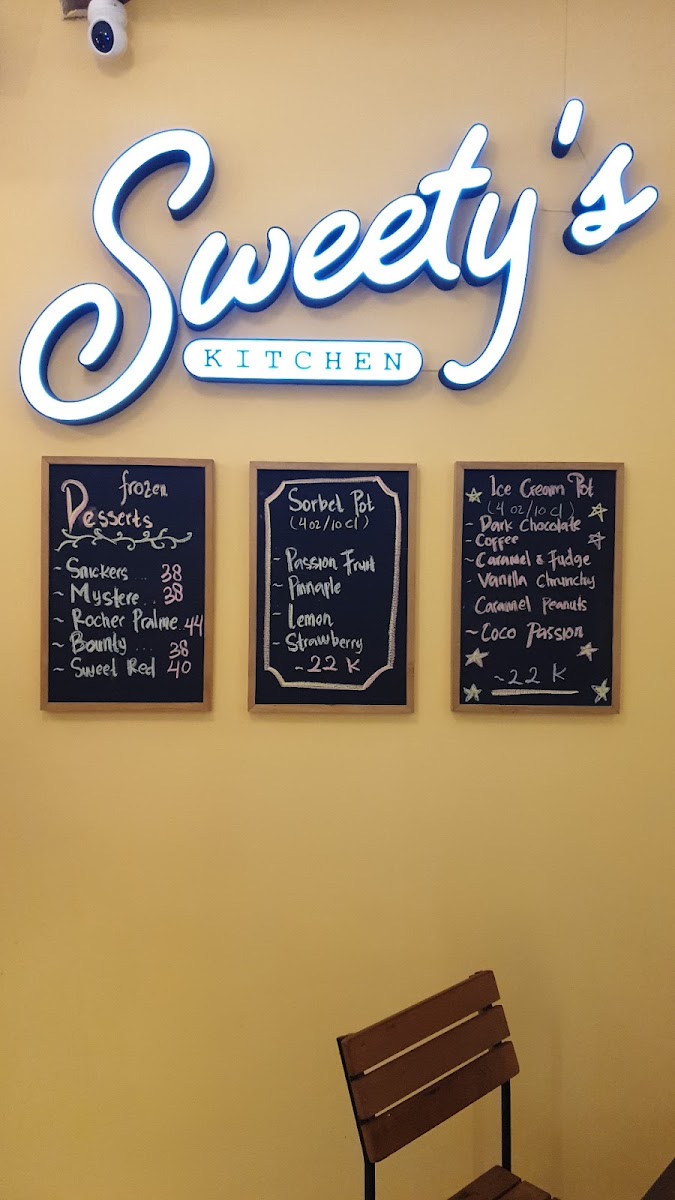 Sweety's
KITCHEN
frozen
Desserts
~ Snickers ... 38
~ Mystere . 38
~ Rocher Praline 44
~ Bounty ... 38
~ Sweet Red 40
Sorbet Pot
(4 oz/10 cl)
- Passion Fruit
~ Pinnaple
- Lemon
~ Strawberry
- 22 K
Ice Cream Pot
(4 oz/10 cl)
- Dark Chocolate
- Coffee
~ Caramel & Fudge
- Vanilla Chrunchy
Caramel Peanuts
~ Coco Passion
~ 22 K